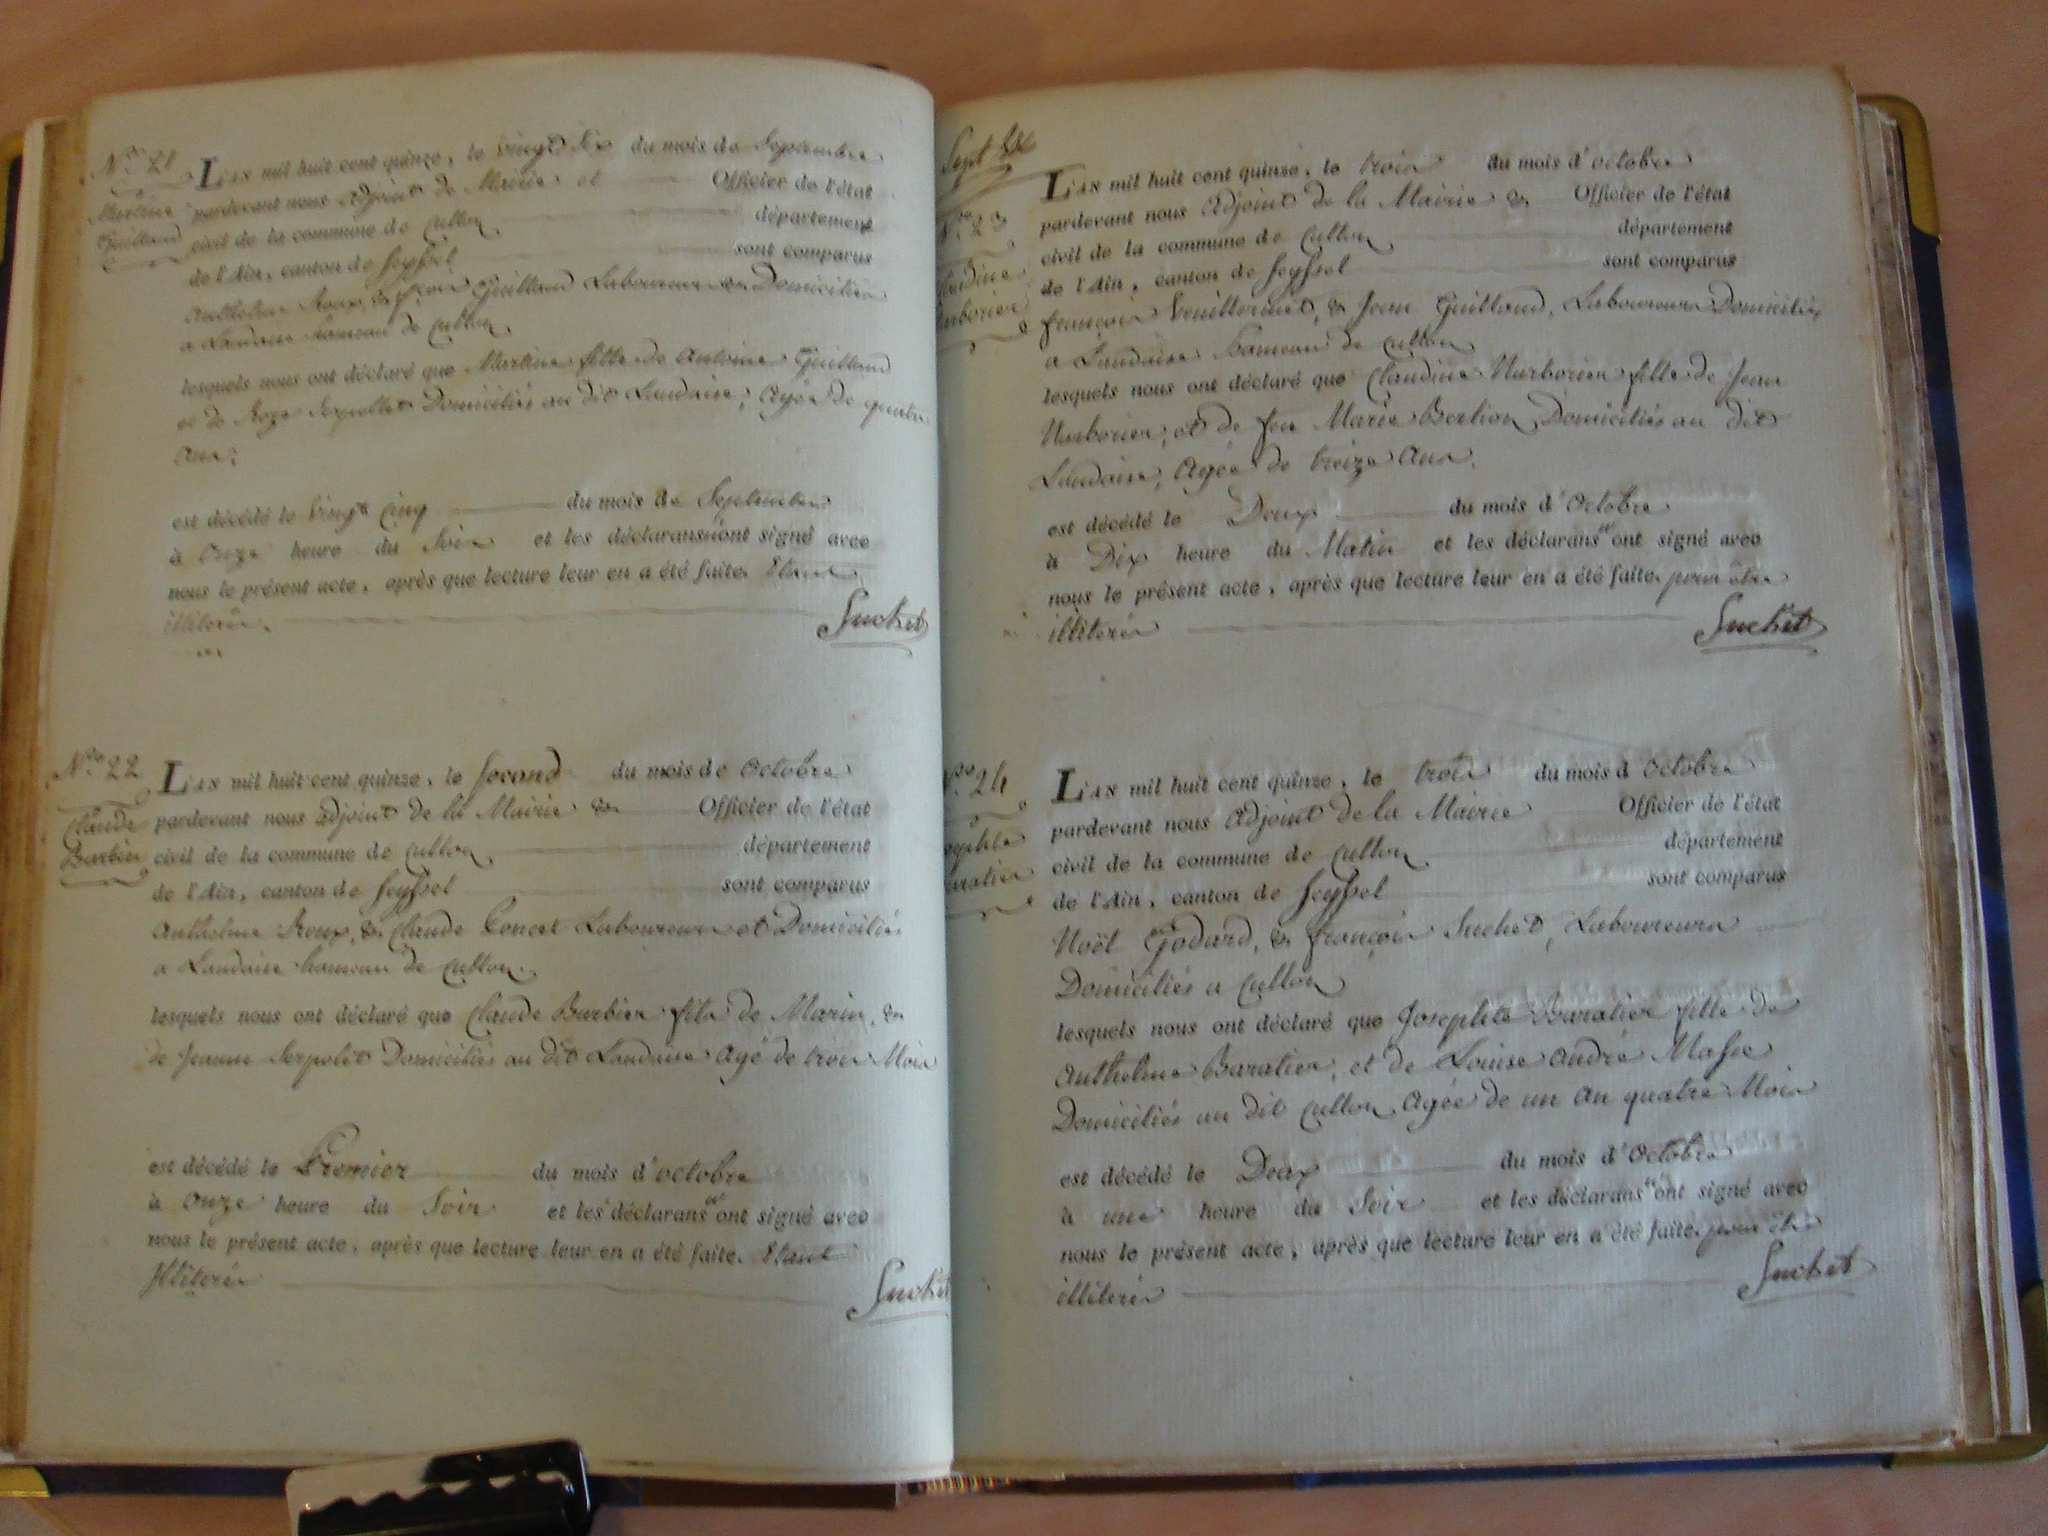 N.o 21
Martine
Guilland
L'an mil huit cent quinze, le vingt six du mois de Septembre
pardevant nous Adjoint de Mairie et Officier de l'état
civil de la commune de Culloz département
de l'Ain, canton de Seyssel sont comparus
Anthelme Roux, & Guilland Laboureurs Domiciliés
a Landaise hameau de Culloz
lesquels nous ont déclaré que Martine fille de Antoine Guilland
et de Roze Serpollet Domiciliés au dit Landaise, Agée de quatre
Ans;
est décédé le vingt Cinq du mois de Septembre
à Onze heure du Soir et les déclarans n'ont signé avec
nous le présent acte, après que lecture leur en a été faite. Etant
illiterés.
Suchet
N.o 22
Claude
Barbier
L'an mil huit cent quinze, le Second du mois de Octobre
pardevant nous Adjoint de la Mairie & Officier de l'état
civil de la commune de Culloz département
de l'Ain, canton de Seyssel sont comparus
Anthelme Roux, & Claude Poncet Laboureurs et Domiciliés
a Landaise hameau de Culloz.
lesquels nous ont déclaré que Claude Burbier fils de Marin, &
de Jeanne Serpolet Domiciliés au dit Landaise Agé de trois Mois
est décédé le Premier du mois d'octobre
à Onze heure du Soir et les déclarans n'ont signé avec
nous le présent acte, après que lecture leur en a été faite. Etant
Illiterés
Suchet
Sept
N.o 23
L'an mil huit cent quinze, le trois du mois d'octobre
pardevant nous Adjoint de la Mairie & Officier de l'état
civil de la commune de Culloz département
de l'Ain, canton de Seyssel sont comparus
françois Venillermet, & Jean Guilland, Laboureurs Domiciliés
a Landaise hameau de Culloz
lesquels nous ont déclaré que Claudine Hurborier fille de Jean
Hurborier, et de feu Marie Bertion Domiciliés au dit
Landaise, Agée de treize Ans.
est décédé le Deux du mois d'Octobre
à Dix heure du Matin et les déclarans n'ont signé avec
nous le présent acte, après que lecture leur en a été faite. pour être
illiterés
Suchet
N.o 24
L'an mil huit cent quinze, le trois du mois d Octobre
pardevant nous Adjoint de la Mairie Officier de l'état
civil de la commune de Culloz département
de l'Ain, canton de Seyssel sont comparus
Noël Godard, & françois Suchet, Laboureurs
Domiciliés a Culloz
lesquels nous ont déclaré que Josephte Baratier fille de
Anthelme Baratier, et de Louise André Masse
Domiciliés au dit Culloz Agée de un an quatre Mois
est décédé le Deux du mois d'Octobre
à une heure du Soir et les déclarans n'ont signé avec
nous le présent acte, après que lecture leur en a été faite. pour être
illiterés
Suchet